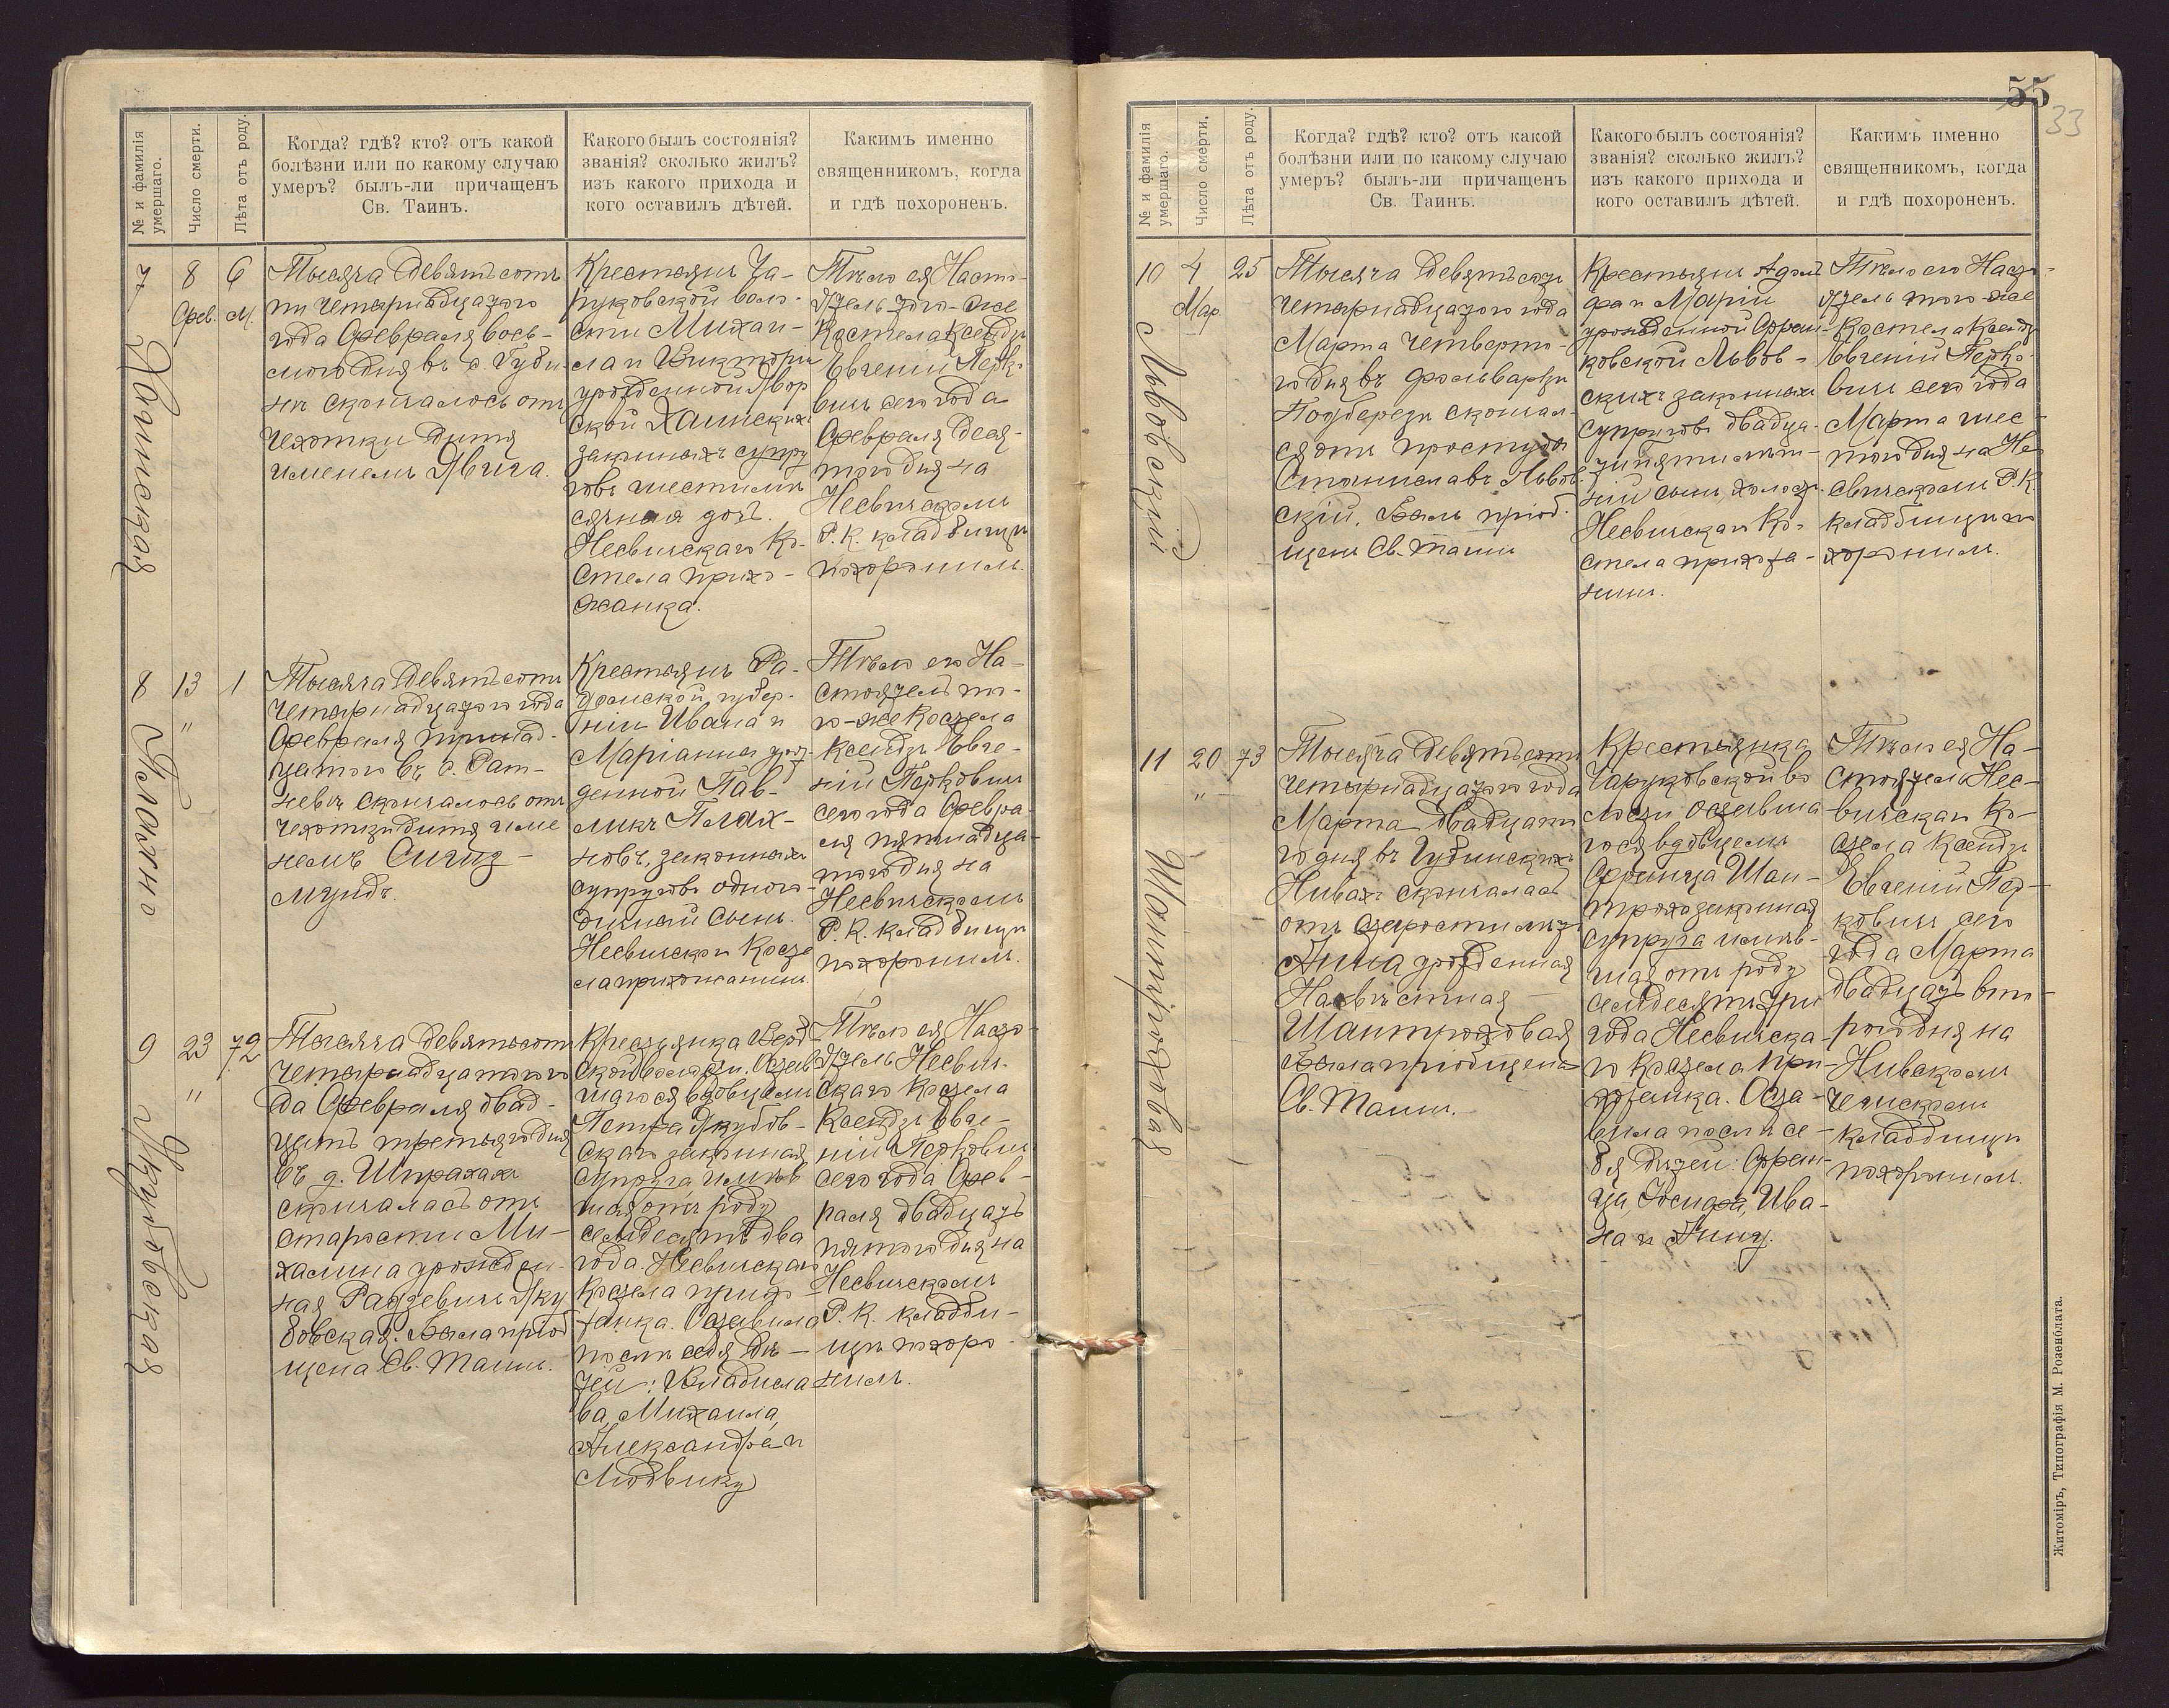 № и фамилія умершаго.
Число смерти.
Лѣта отъ роду.
Когда? гдѣ? кто? отъ какой
болѣзни или по какому случаю
умеръ? былъ-ли причащенъ
Св. Таинъ.
Какого былъ состоянія?
званія? сколько жилъ?
изъ какого прихода и
кого оставилъ дѣтей.
Какимъ именно
священникомъ, когда
и гдѣ похороненъ.
7
Хаинская
8
Фев.
6
М.
Тысяча девятьсот
четырнадцатого
года Февраля вось-
мого дня въ с. Губи-
нѣ скончалось отъ
чехотки дитя
именемъ Ядвига.
Крестьянъ Ча-
руковской воло-
сти Михаи-
ла и Викторіи
урожденной Явор
ской Хаинскихъ
законныхъ супру
говъ шестимѣ
сячная дочь.
Несвичскаго Ко-
стела прихо-
жанка.
Тѣло ея Насто-
ятель того-же
Костела Ксендзъ
Евгеній Перко-
вичъ сего года
Февраля деся-
того дня на
Несвичскомъ
Р. К. кладбищѣ
похоронилъ.
8
Плахно
13
"
1
Тысяча девятьсотъ
четырнадцатого года
Февраля тринад-
цатого въ с. Рат-
невѣ скончалось отъ
чехотки дитя име
немъ Сигиз-
мундъ.
Крестьянъ Ра-
домской губер-
ніи Ивана и
Маріанны урож-
денной Пав-
ликъ Плах-
новъ, законныхъ
супруговъ одного-
дичный сынъ.
Несвичскаго Косте
ла прихожанинъ.
Тѣло его На-
стоятель то-
го-же Костела
Ксендзъ Евге-
ній Перковичъ
сего года Февра-
ля пятнадца-
того дня на
Несвичскомъ
Р. К. кладбищѣ
похоронилъ.
9
Якубовская
23
"
72
Тысяча девятьсотъ
четырнадцатого го
да Февраля двад-
цать третьяго дня
въ д. Шпрахахъ
скончалась отъ
старости Ми-
халина урожден-
ная Радзевичъ Яку
бовская. Была пріоб
щена Св. Таинъ.
Крестьянка Верб
ской волости. Остав
шагося вдовцемъ
Петра Якубов-
скаго законная
супруга, имѣв
шая отъ роду
семдесятъ два
года. Несвичскаго
Костела прихо-
жанка. Оставила
послѣ себя дѣ-
тей: Владисла-
ва, Михаила,
Александра и
Людвику
Тѣло ея Насто-
ятель Несвич-
скаго Костела
Ксендзъ Евге-
ній Перковичъ
сего года Фев-
раля двадцать
пятого дня на
Несвичскомъ
Р. К. кладби-
щѣ похоро-
нилъ.
55
33
№ и фамилія умершаго.
Число смерти.
Лѣта отъ роду.
Когда? гдѣ? кто? отъ какой
болѣзни или по какому случаю
умеръ? былъ-ли причащенъ
Св. Таинъ.
Какого былъ состоянія?
званія? сколько жилъ?
изъ какого прихода и
кого оставилъ дѣтей.
Какимъ именно
священникомъ, когда
и гдѣ похороненъ.
10
Львовскій
4
Мар.
25
Тысяча девятьсотъ
четырнадцатого года
Марта четверто-
го дня въ фольваркѣ
Подберезѣ скончал-
ся отъ простуды
Станиславъ Львов-
скій. Былъ пріоб-
щенъ Св. Таинъ
Крестьянъ Адоль
фа и Маріи
урожденной Фран-
ковской Львов-
скихъ законныхъ
супруговъ двадца-
типятилѣт-
ній сынъ, холостъ.
Несвичскаго Ко-
стела прихожа-
нинъ.
Тѣло его Насто-
ятель того-же
Костела Ксендзъ
Евгеній Перко-
вичъ сего года
Марта шес-
того дня на Не-
свичскомъ Р. К.
кладбищѣ по
хоронилъ.
11
Шантроховая
20
"
73
Тысяча девятьсотъ
четырнадцатого года
Марта двадцато
го дня въ Губинскихъ
Нивахъ скончалась
отъ старости лѣтъ
Анна урожденная
Неизвѣстная
Шантроховая
Была пріобщена
Св. Таинъ.
Крестьянка
Чаруковской во
лости, оставша
гося вдовцемъ
Франца Шан-
троха законная
супруга имѣв-
шая отъ роду
семдесятъ три
года Несвичска-
го Костела при-
хожанка. Оста-
вила послѣ се-
бя дѣтей: Фран-
ца, Іосифа, Ива-
на и Анну.
Тѣло ея На-
стоятель Нес-
вичскаго Ко-
стела Ксендзъ
Евгеній Пер-
ковичъ сего
года Марта
двадцать вто-
рого дня на
Нивскомъ
Чешскомъ
кладбищѣ
похоронилъ.
Житоміръ, Типографія М. Розенблата.